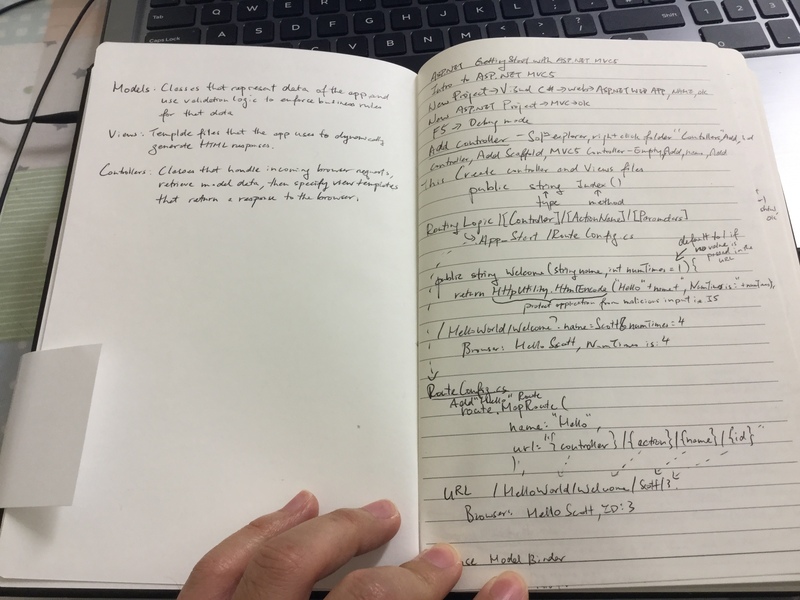 Models: Classes that represent data of the app and
use validation logic to enforce business rules
for that data
Views: Template files that the app uses to dynamically
generate HTML responses.
Controllers: Classes that handle incoming browser requests,
retrieve model data, then specify view templates
that return a response to the browser.
ASP.NET Getting Start with ASP.NET MVC5
Intro to ASP.NET MVC5
New Project → Visual C# → web → ASP.NET Web APP, NAME, OK
New ASP.NET Project → MVC → OK
F5 → Debug mode
Add controller - explorer, right click folder "Controllers", Add,
Controller, Add Scaffold, MVC5 Controller - Empty, Add, name, Add
This Create controller and Views files
public string Index()
type method
Routing Logic /[Controller]/[ActionName]/[Parameters]
App_Start /Route Config.cs
default to 1 if
no value is
passed in the
URL
public string Welcome(string name, int numTimes = 1) {
return HttpUtility.HtmlEncode("Hello" + name + ", NumTimes is:" + numTimes);
protect application from malicious input ie JS
/HelloWorld/Welcome?name=Scott&numTimes=4
Browser: Hello Scott, NumTimes is: 4
RouteConfig.cs
Add "Hello" Route
route.MapRoute(
name: "Hello",
url: "{controller}/{action}/{name}/{id}"
);
URL /HelloWorld/Welcome/Scott/3
Browser: Hello Scott, ID: 3
Model Binder
Caps Lock
Shift
A
S
Z
X
C